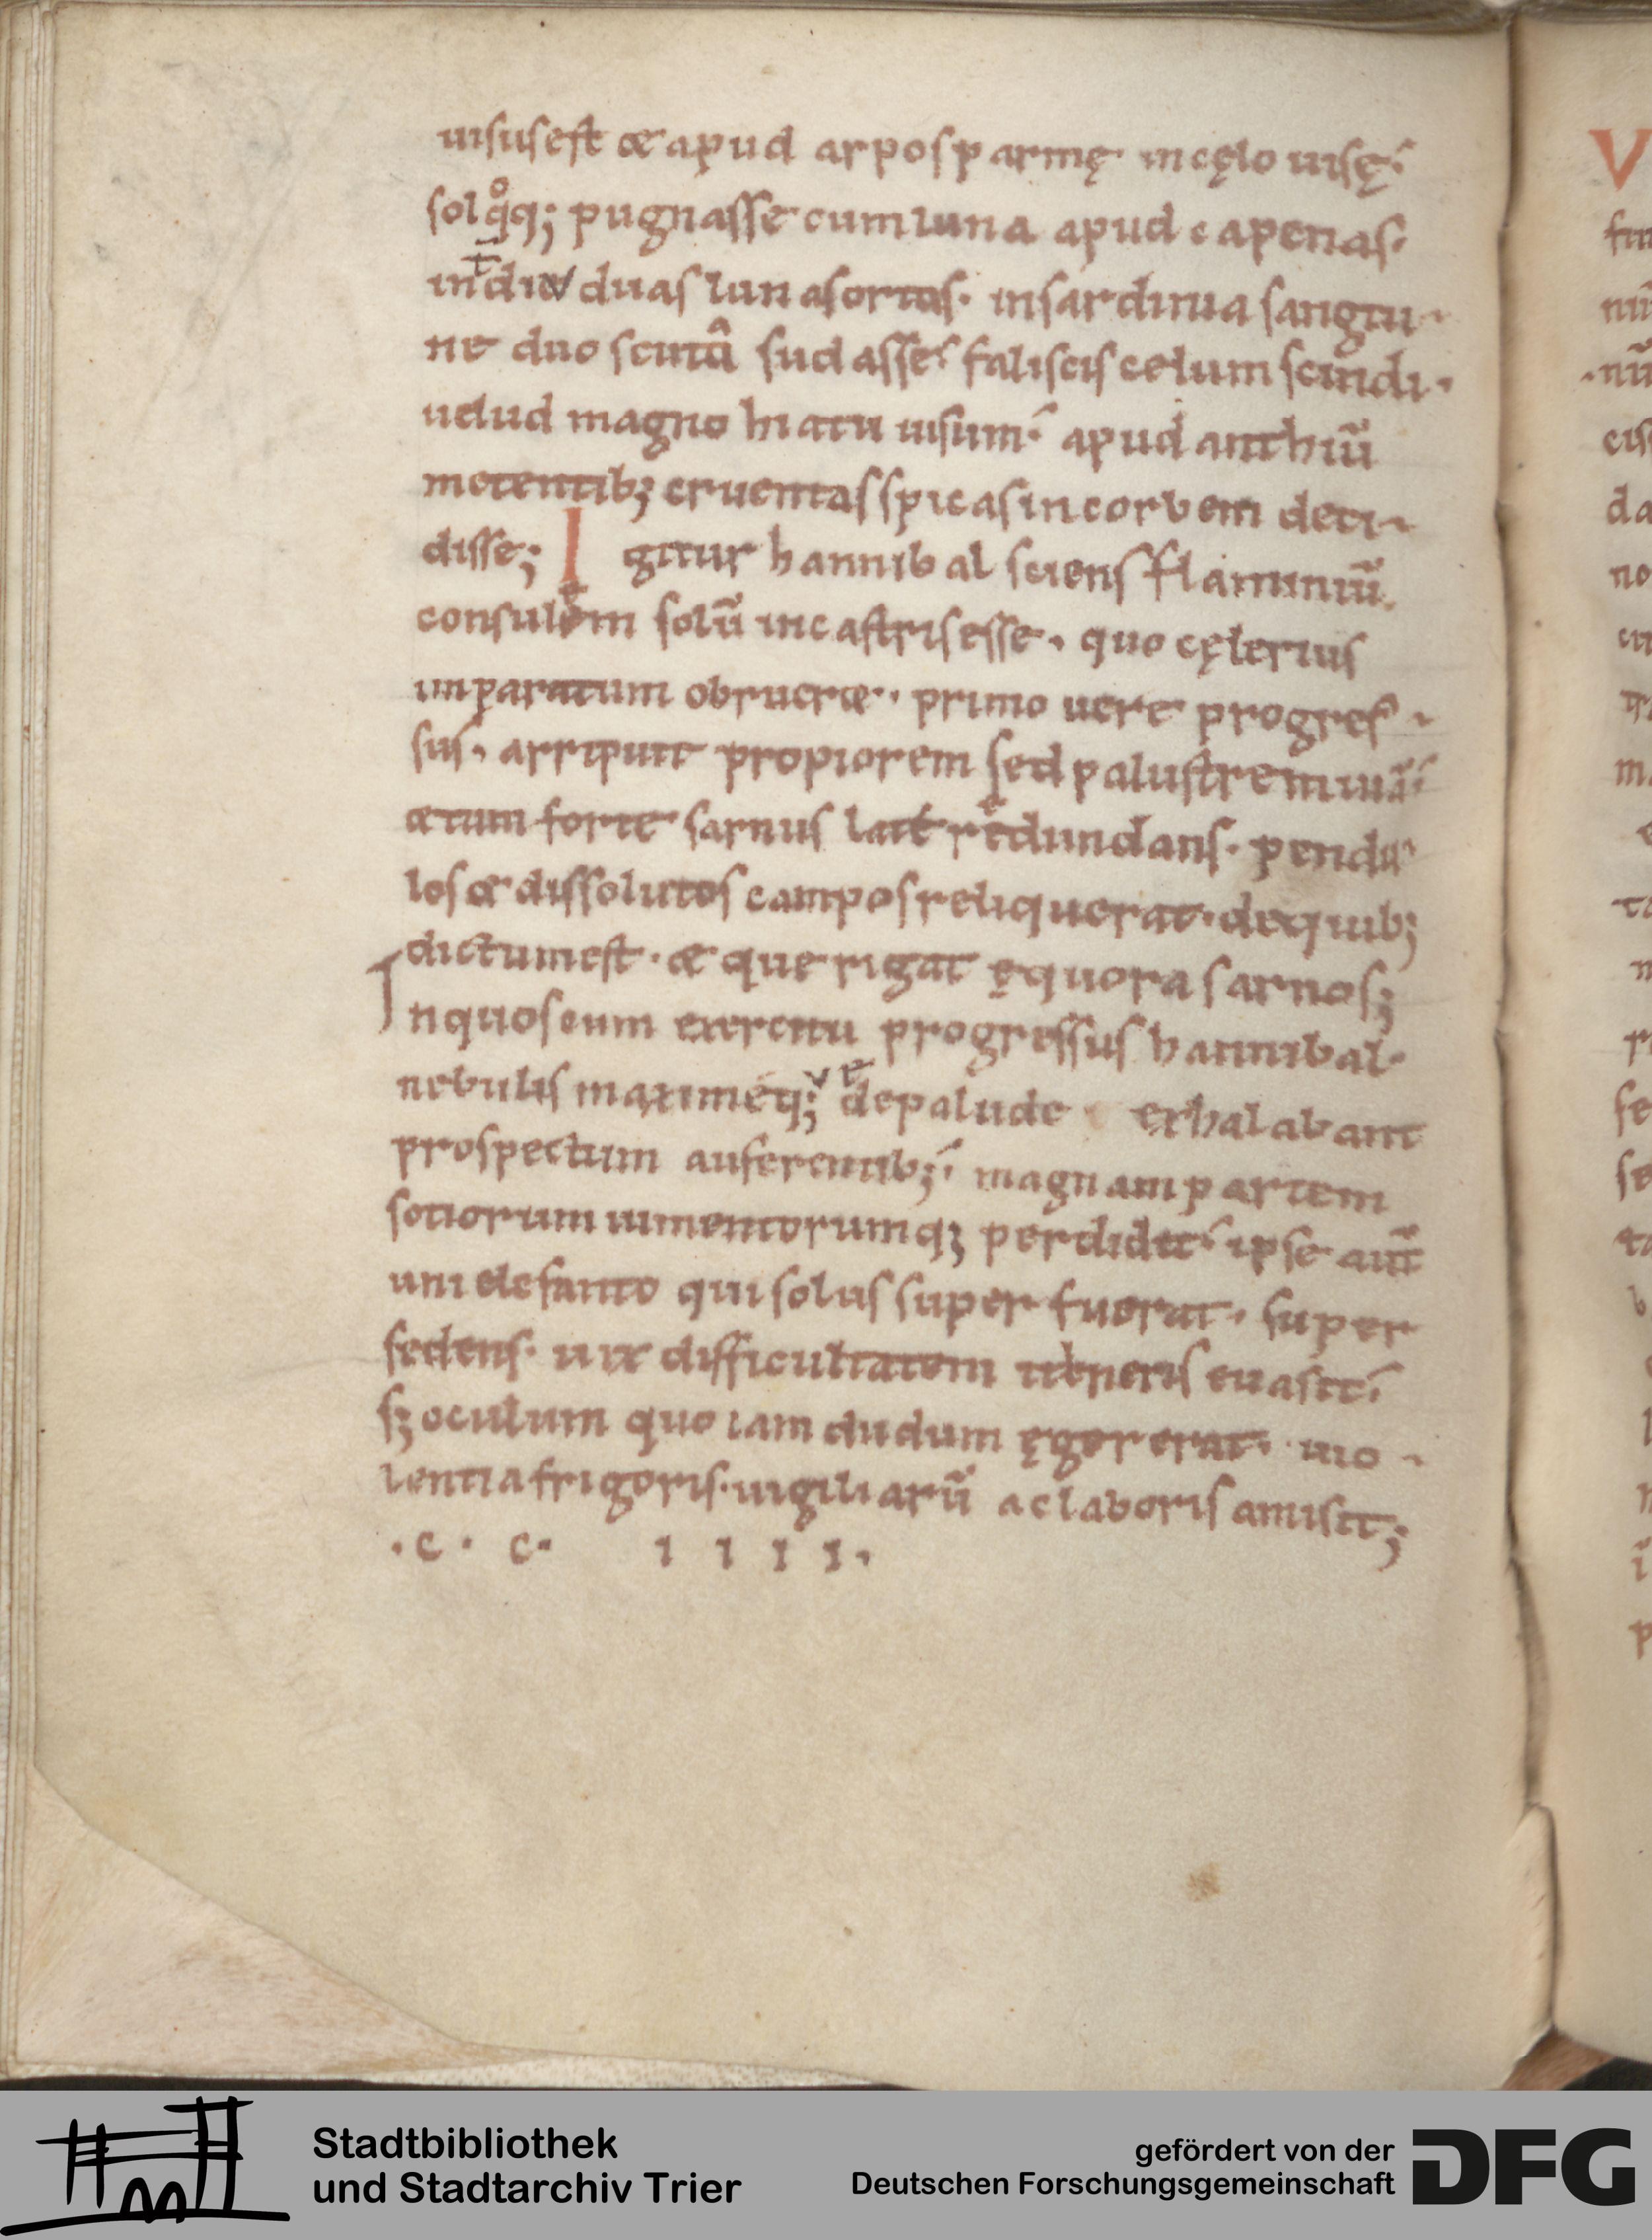 uisus est & apud arpos parmę in cęlo uisę.
sol qͦq; pugnasse cum luna apud capenas.
in t̄ diu duas lunas ortas. in sardinia sangui-
ne duo scuta sudasse. faliscis celum scindi.
uelud magno hiatu uisum. apud anthiū
metentib; cruentas spicas in corbem deci-
disse; Igitur hannibal sciens flaminiū
consulem solū in castris esse, quo cęlerius
imparatum obrueret. primo uere progres-
sus, arripuit propiorem sed palustrem uiā.
& tum forte sarnus late redundans. pendu-
los & dissolutos campos reliquerat. de quib;
dictum est. & que rigat ęquora sarnos;
In quos cum exercitu progressus hannibal.
nebulis maximeq; vę de palude exhalabant
prospectum auferentib;. magnam partem
sotiorum iumentorumq; perdidit. ipse aut̄
uni elefanto qui solus superfuerat, super
sedens. uix difficultatem itineris euasit.
s; oculum quo iam dudum ęger erat. uio-
lentia frigoris. uigiliarū ac laboris amisit;
.c. c. ı ı ı ı.
V
Stadtbibliothek
und Stadtarchiv Trier
gefördert von der
Deutschen Forschungsgemeinschaft
DFG